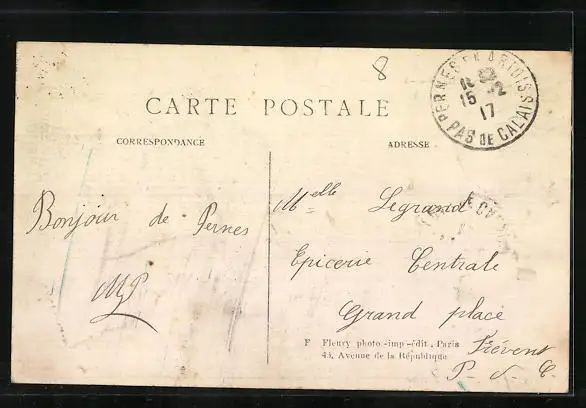 8
PERNES EN ARTOIS
15 -2
17
PAS DE CALAIS
CARTE POSTALE
CORRESPONDANCE
ADRESSE
Bonjour de Pernes
Melle Legrand
Epicerie Centrale
Grand place
Frévent
P. d. C.
F Fleury photo-imp-édit, Paris
43, Avenue de la République